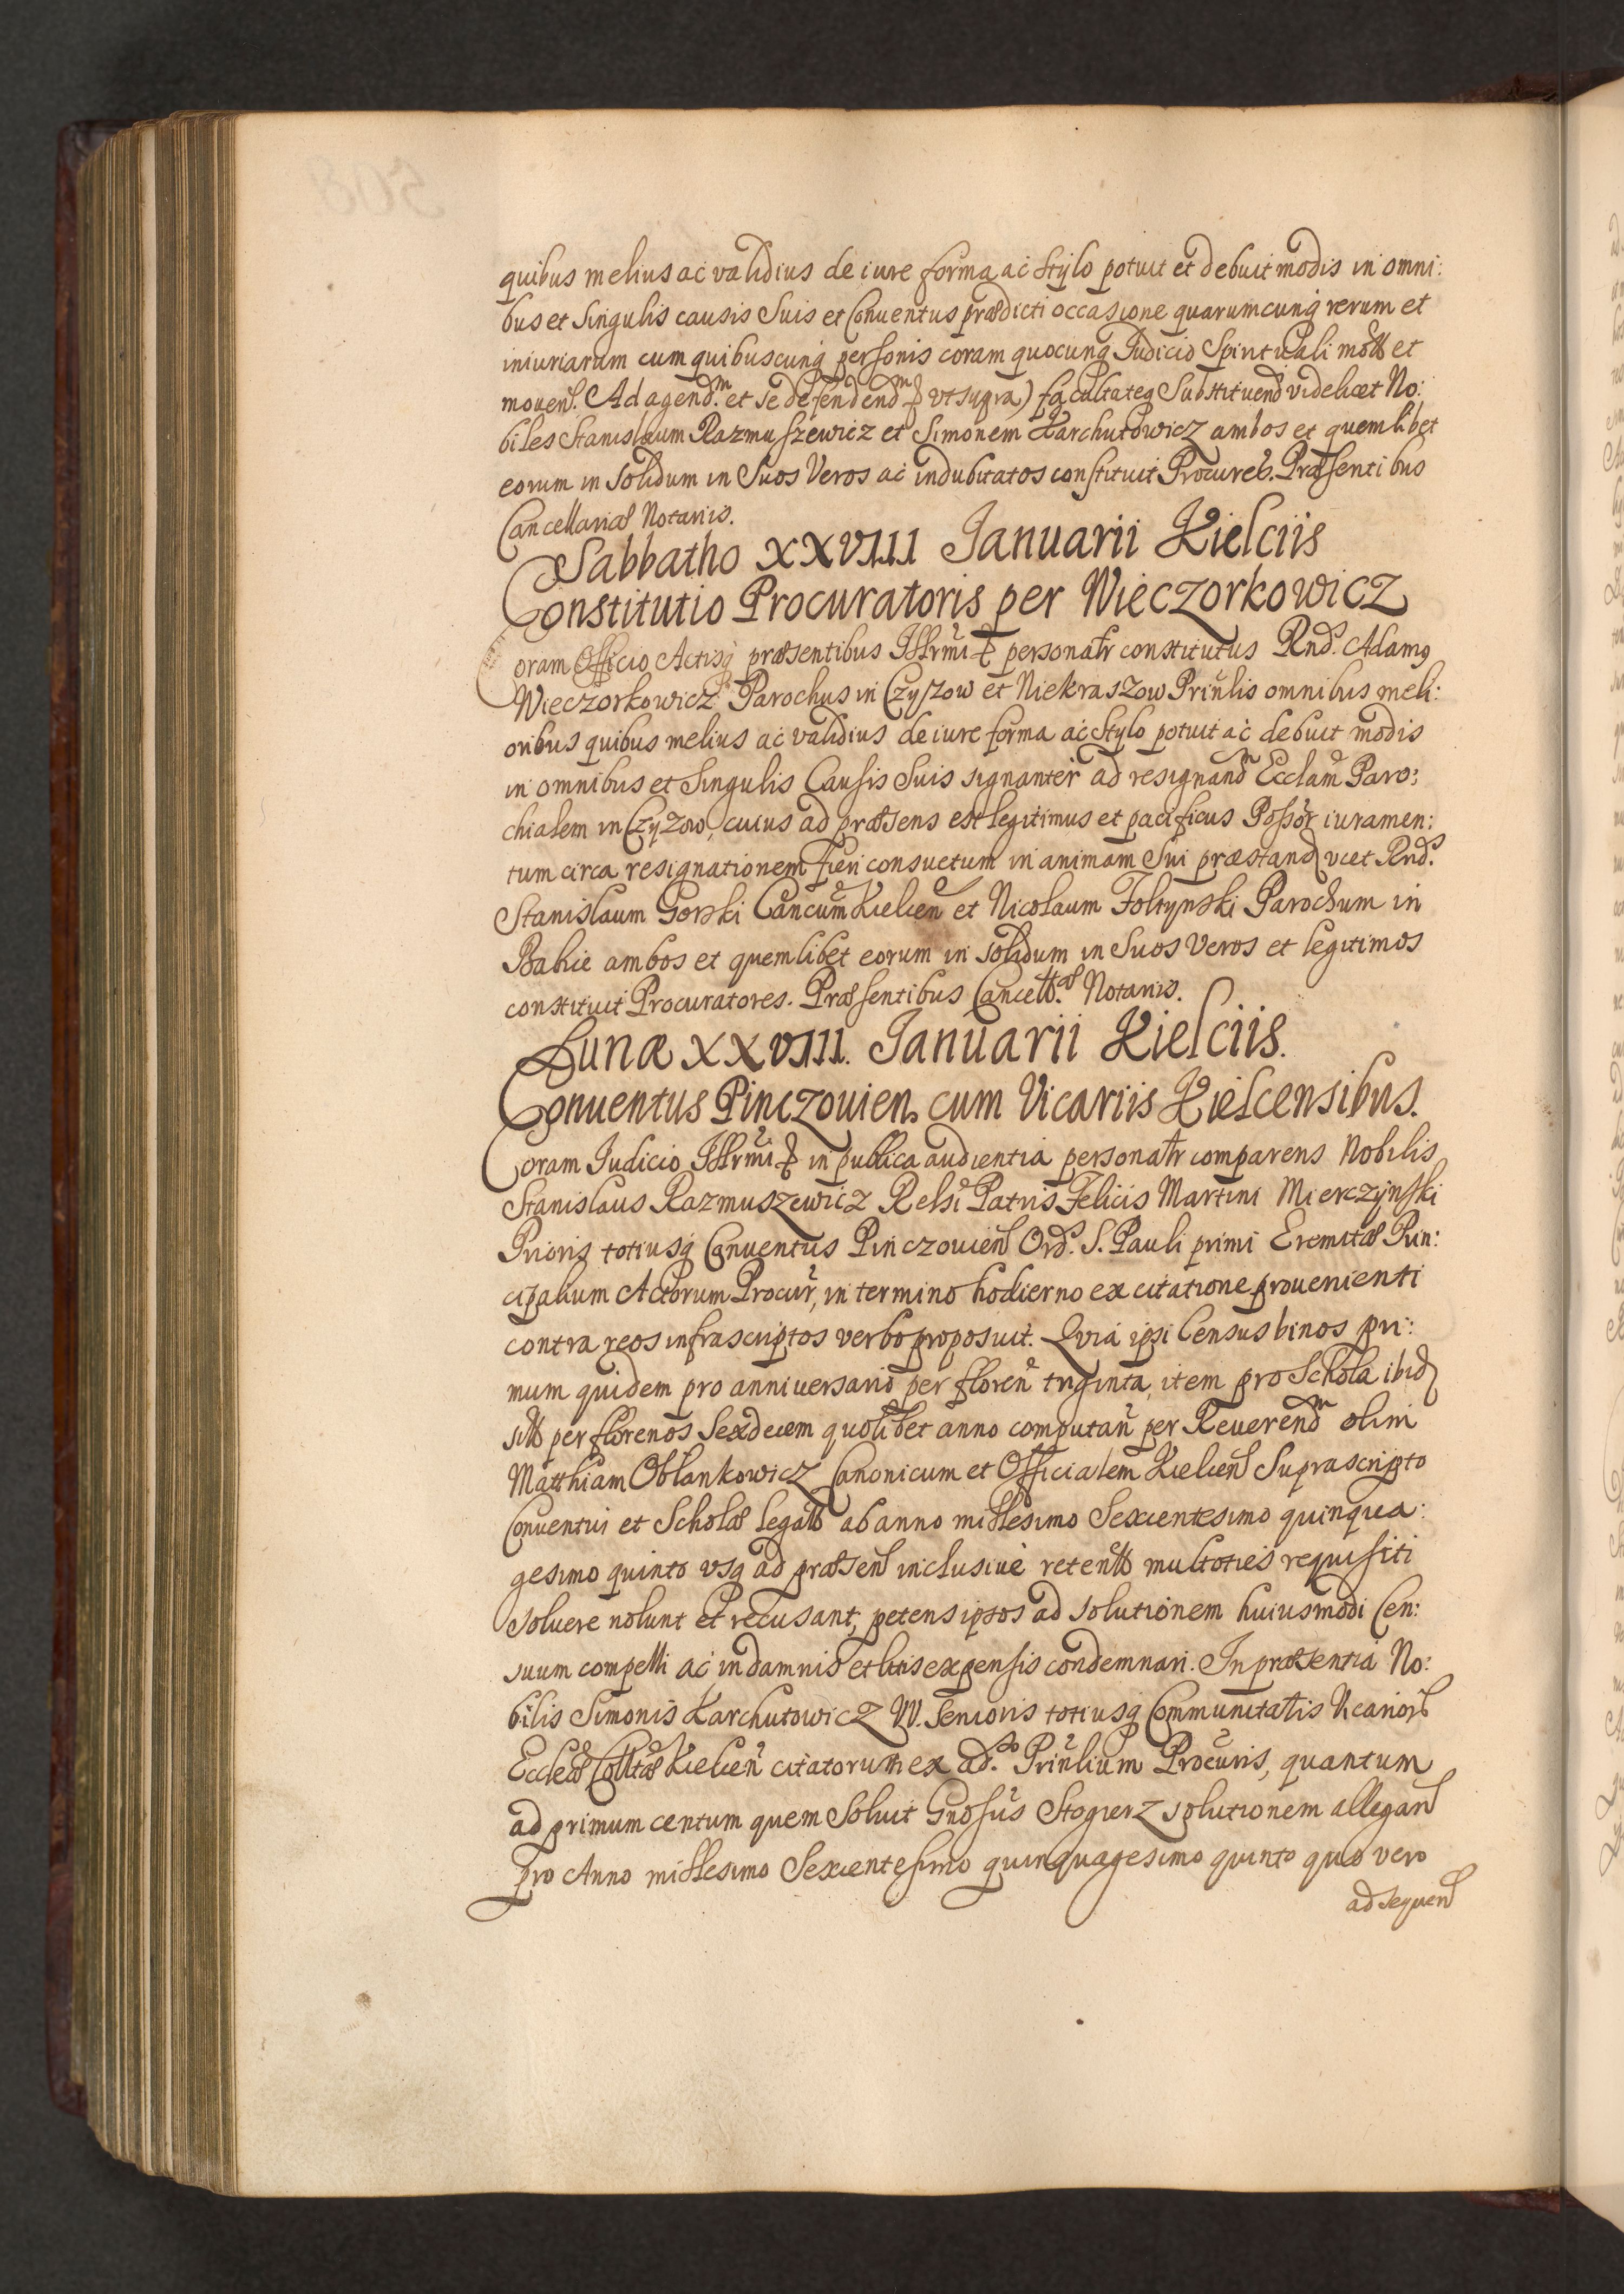 quibus melius ac validius de iure forma ac stylo potuit et debuit modis in omni:
bus et singulis causis suis et Conuentus prædicti occasione quarumcunq rerum et
iniuriarum cum quibuscunq personis coram quocunq Iudicio Spirituali mott et
mouen. Ad agendm. et se defendendm ut supra) facultateq substituend videlicet No:
biles Stanislaum Razmuszewicz et Simonem Karchutowicz ambos et quemlibet
eorum in solidum in suos veros ac indubitatos constituit Procures. Præsentibus
Cancellariæ Notariis.
Sabbatho XXVIII Ianuarii Kielciis
Constitutio Procuratoris per Wieczorkowicz
Coram Officio Actisq præsentibus Illrmi personatr constitutus Rnds. Adamus
Wieczorkowicz Parochus in Czyszow et Niekraszow Prinlis omnibus meli:
oribus quibus melius ac validius de iure forma ac stylo potuit ac debuit modis
in omnibus et singulis Causis suis signanter ad resignandm Ecclam Paro:
chialem in Czyzow, cuius ad præsens est legitimus et pacificus Possor iuramen:
tum circa resignationem fieri consuetum in animam sui præstand vcet Rnds.
Stanislaum Gorski Cancum Kielcen et Nicolaum Foltynski Parochum in
Balice ambos et quemlibet eorum in solidum in suos veros et legitimos
constituit Procuratores. Præsentibus Cancell.æ Notariis.
Lunæ XXVIII. Ianuarii Kielciis.
Conuentus Pinczouien. cum Vicariis Kielcensibus.
Coram Iudicio Illrmi in publica audientia personatr comparens Nobilis
Stanislaus Razmuszewicz Relsi Patris Felicis Martini Mierczynski
Prioris totiusq Conuentus Pinczouien Ords. S. Pauli primi Eremitæ Prin:
cipalium Actorum Procur, in termino hodierno ex citatione prouenienti
contra reos infrascriptos verbo proposuit. Quia ipsi Census binos pri:
mum quidem pro anniversario per floren triginta, item pro Schola ibid
sitt per florenos sexdecem quolibet anno computan per Reuerendm olim
Matthiam Oblankowicz Canonicum et Officialem Kielcen suprascripto
Conuentui et Scholæ legatt ab anno millesimo sexcentesimo quinqua:
gesimo quinto vsq ad præsen inclusiue retentt multoties requisiti
soluere nolunt et recusant, petens ipsos ad solutionem huiusmodi Cen:
suum compelli ac in damnis et litis expensis condemnari. In præsentia No:
bilis Simonis Karchutowicz W. Senioris totiusq Communitatis Vicarior
Eccleæ Colltæ Kielcen citatorum ex ado. Prinlium Procuris, quantum
ad primum centum quem soluit Gnosus Stogierz solutionem allegan
pro Anno millesimo sexcentesimo quinquagesimo quinto quo vero
ad sequen